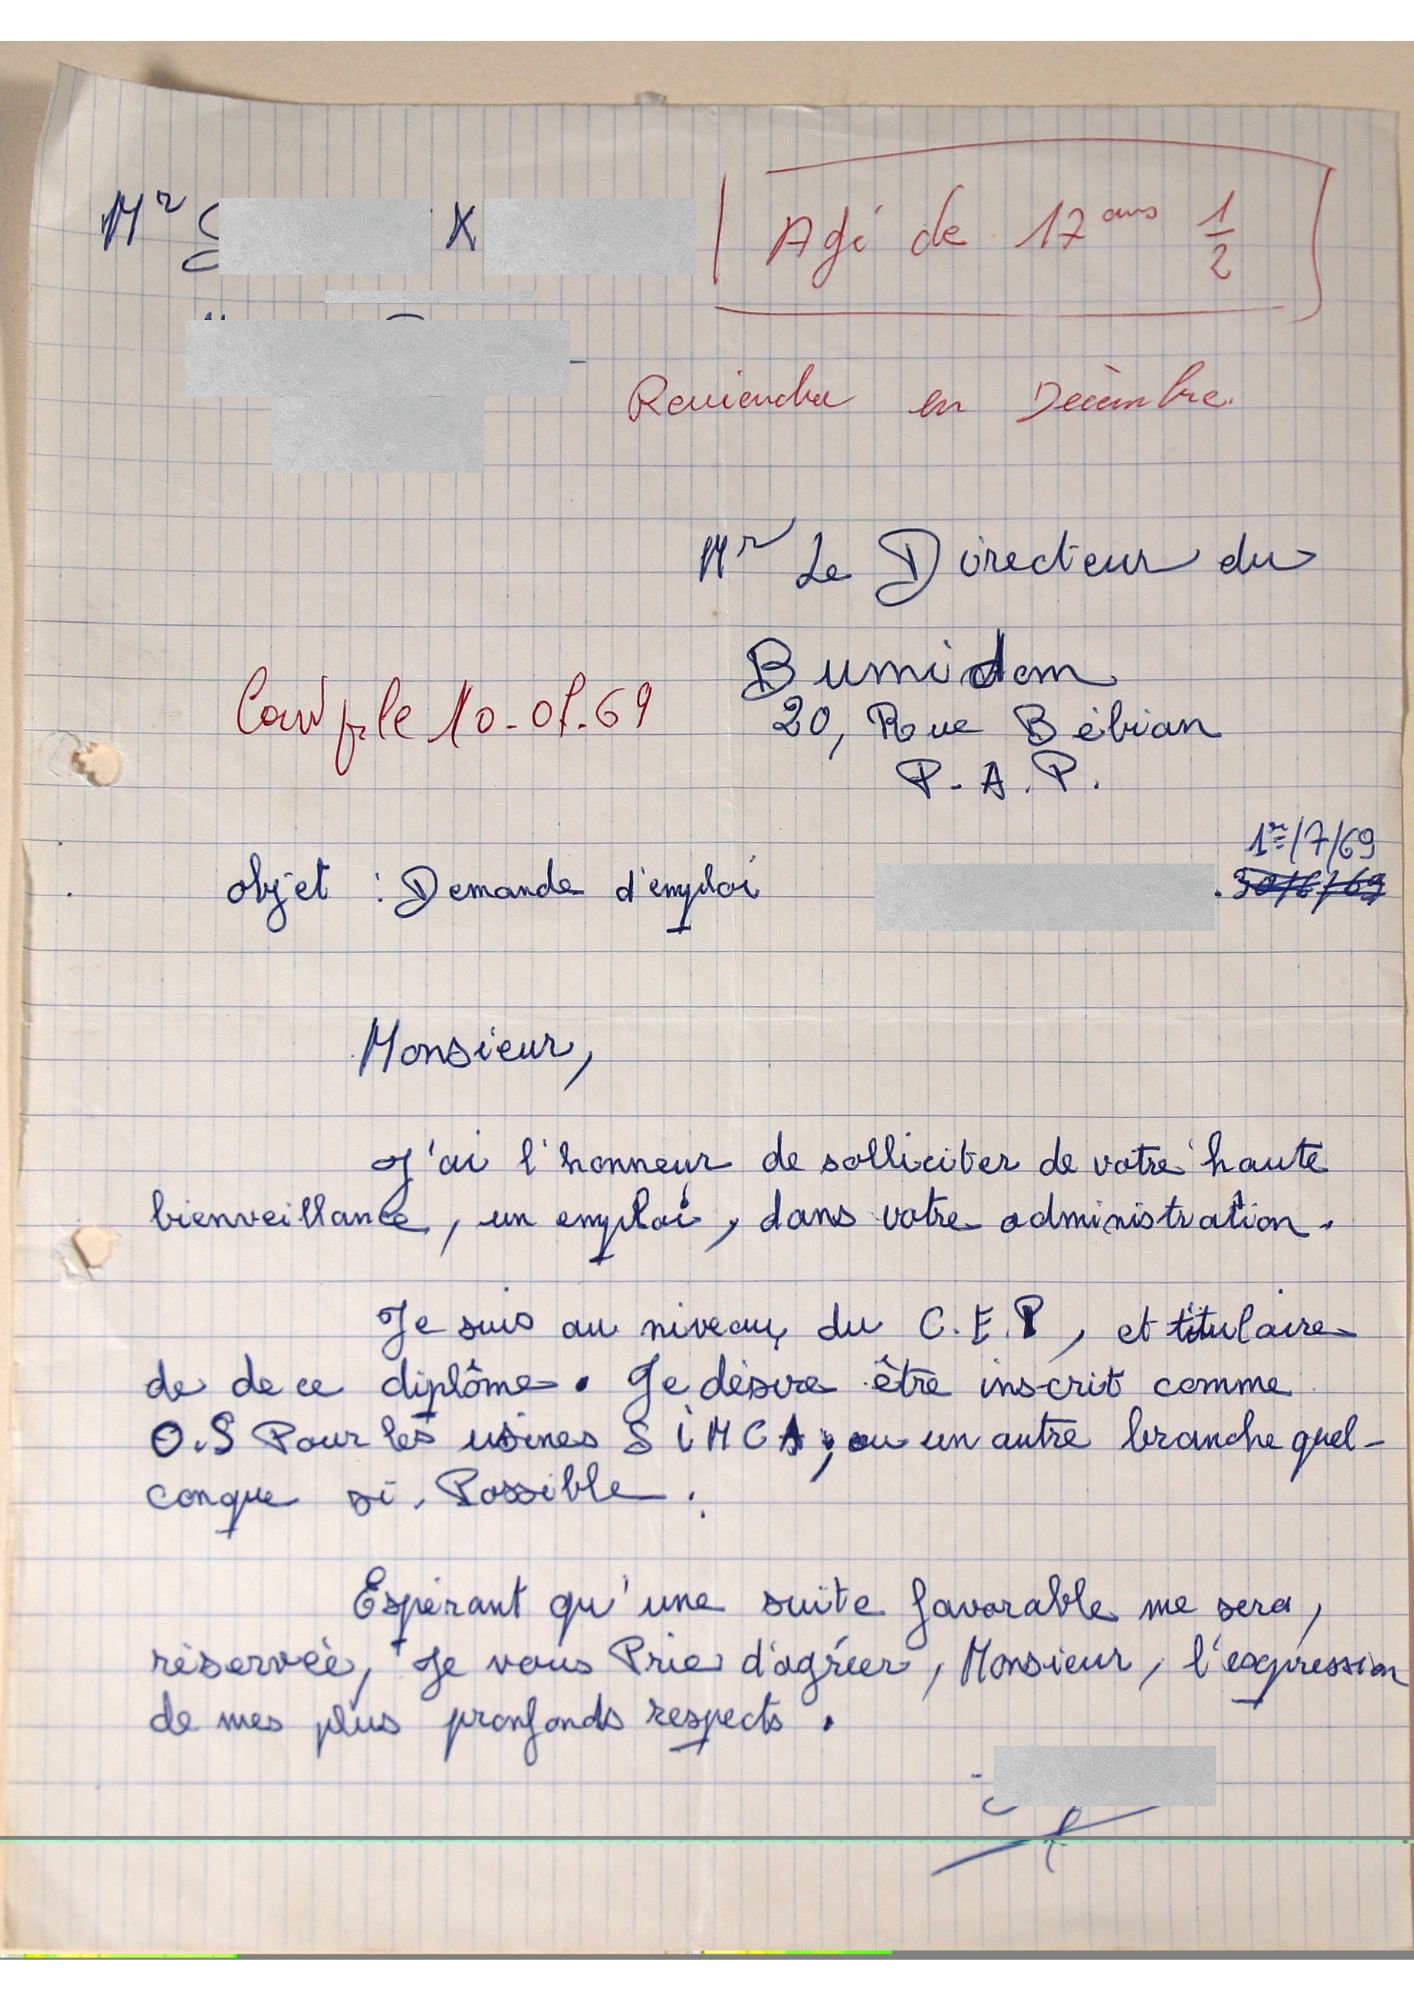 Mr
X
Agé de 17 ans 1/2
Reviendra en Décembre.
Mr Le Directeur du
Bumidom
20, Rue Bébian
P.A.P.
le 10-07-69
1er/7/69
objet : Demande d'emploi
30/6/69
Monsieur,
J'ai l'honneur de solliciter de votre haute
bienveillance, un emploi, dans votre administration.
Je suis au niveau du C.E.P, et titulaire
de de ce diplôme. Je désire être inscrit comme
O.S Pour les usines SiMCA, ou un autre branche quel-
conque si Possible.
Espérant qu'une suite favorable me sera,
réservée, Je vous Prie d'agréer, Monsieur, l'expression
de mes plus profonds respects.